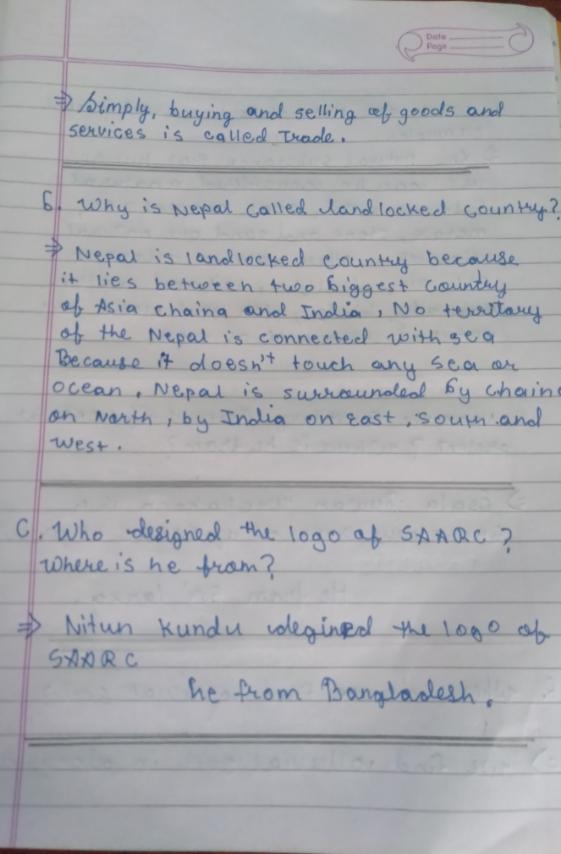 Date
Page
⇒ Simply, buying and selling of goods and
services is called Trade.
b. Why is Nepal called landlocked country?
⇒ Nepal is landlocked country because
it lies between two biggest country
of Asia chaina and India, No territory
of the Nepal is connected with sea
Because it doesn't touch any sea or
ocean. Nepal is surrounded by chaina
on North, by India on east, south and
west.
C. Who designed the logo of SAARC?
Where is he from?
⇒ Nitun Kundu degined the logo of
SAARC
he from Bangladesh.